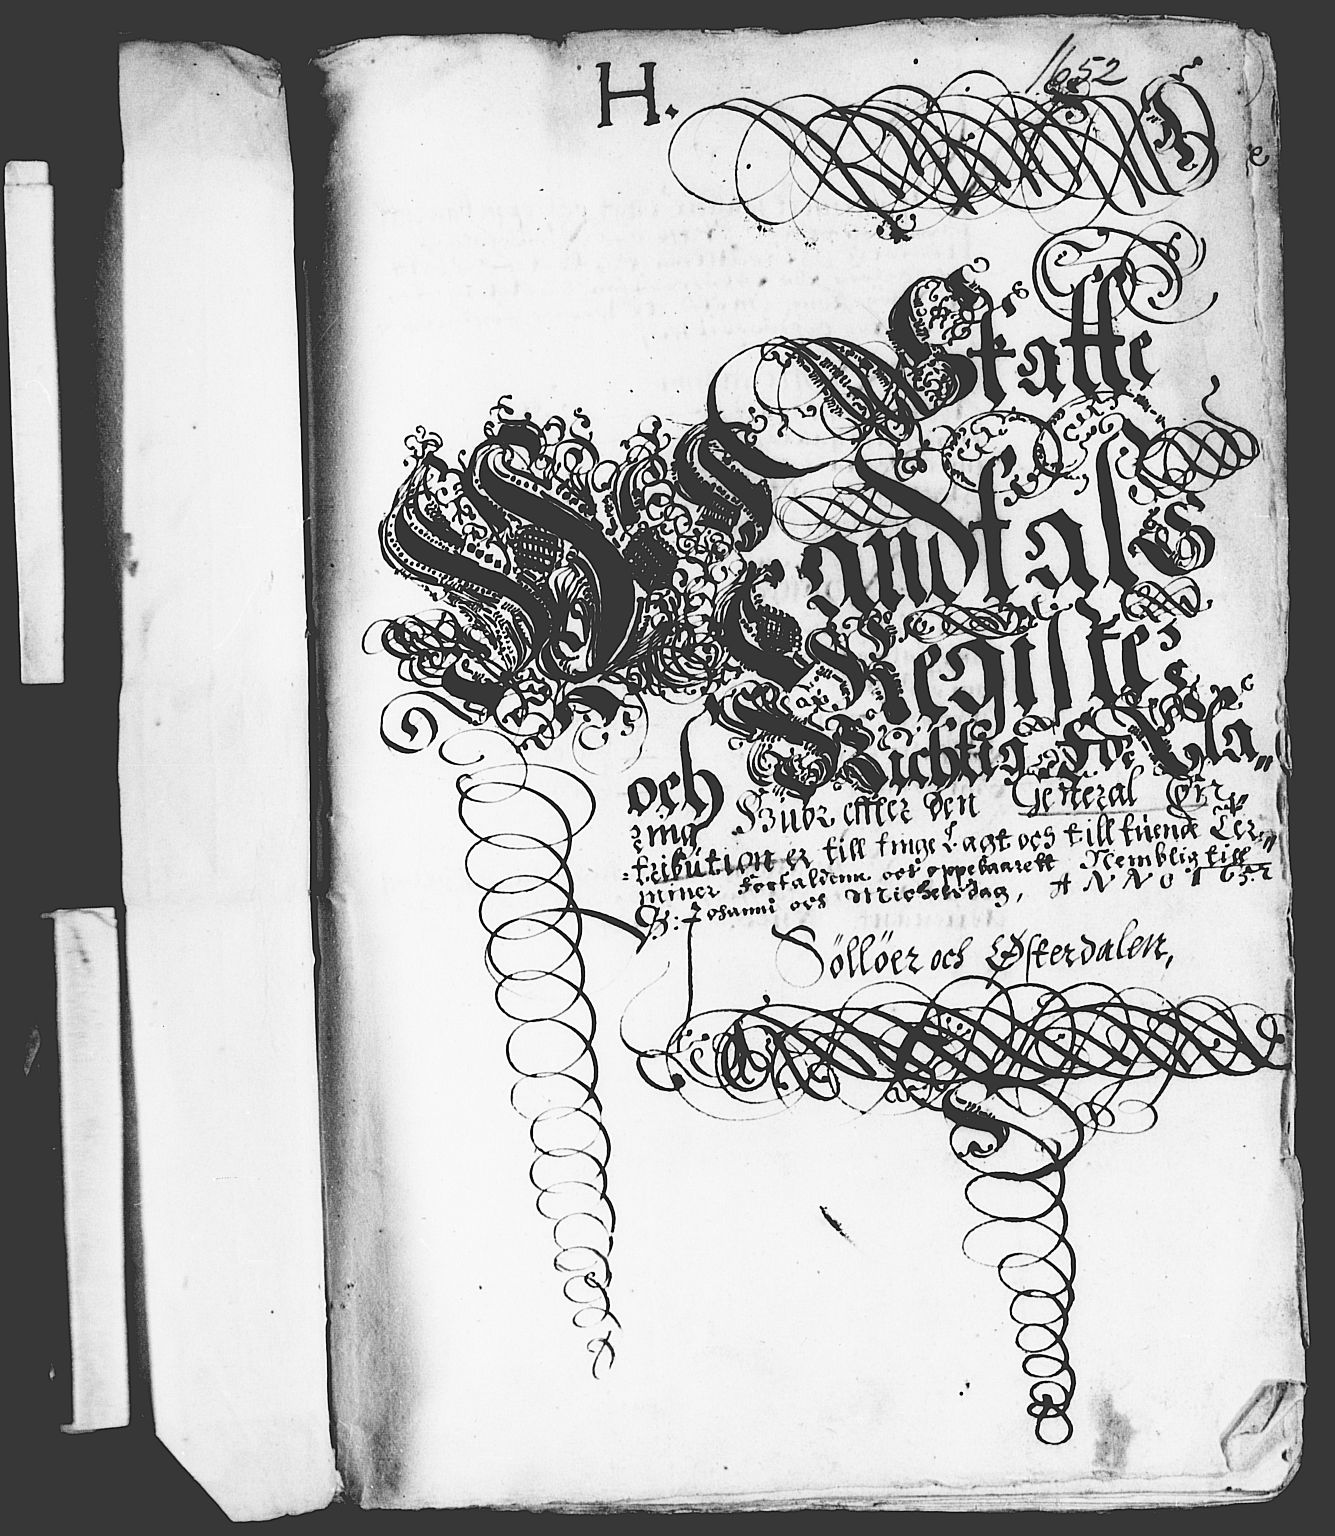 H.
1652
Skatte
Mandtals
Register
och Richtig for Kla„
ring Huor effter den General Con„
=tribution er till finge Lagt och till tuende Ter„
miner forfaldenn och oppebaarett Nemblig till
S: Johanni och Michelsdag, ANNO 1652
Söllöer och Østerdalen,